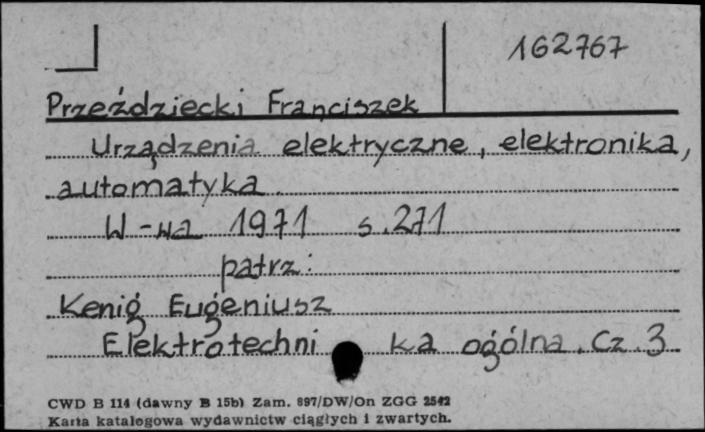 162767
Przeździecki Franciszek
Urządzenia elektryczne, elektronika,
automatyka.
W-wa 1971 s.271
patrz:
Kenig Eugeniusz
Elektrotechni ka ogólna. Cz. 3
CWD B 114 (dawny B 15b) Zam. 897/DW/On ZGG 2542
Karta katalogowa wydawnictw ciągłych i zwartych.